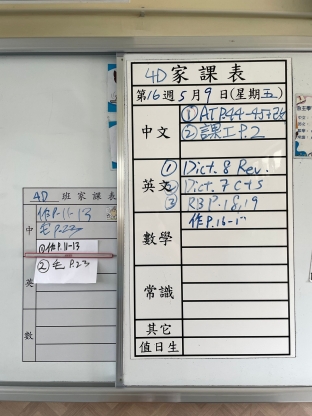 4D 家課表
第16週5月9日(星期五)
中文
① AT P.44-45
② 課工 P.2
英文
① Dict. 8 Rev.
② Dict. 7 C+S
③ RB P.18,19
數學
作 P.16-17
常識
其它
值日生
4D 班家課表
中
作P.11-13
毛 P.23
①作P.11-13
② 毛 P.23
英
數